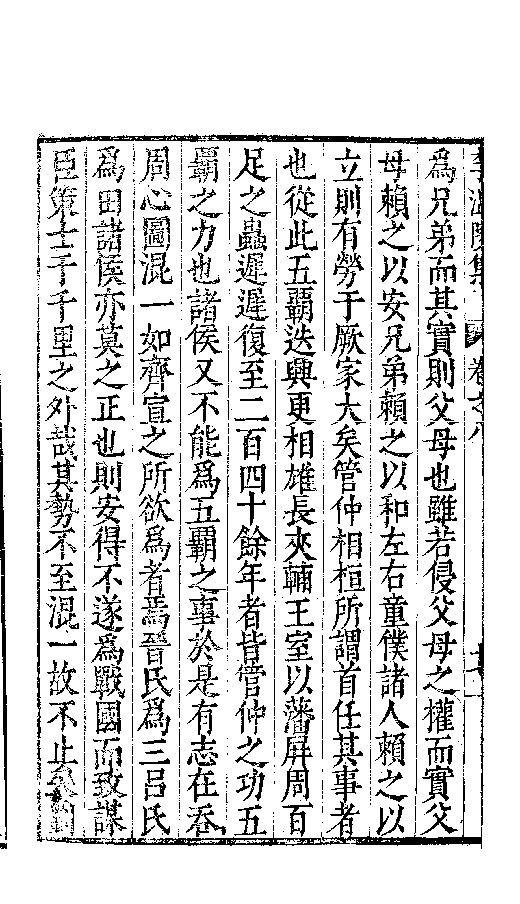 李溫陵集 卷之八 十一
為兄弟而其實則父母也雖若侵父母之權而實父
母賴之以安兄弟賴之以和左右童僕諸人賴之以
立則有勞于厥家大矣管仲相桓所謂首任其事者
也從此五霸迭興更相雄長夾輔王室以藩屏周百
足之蟲遲遲復至二百四十餘年者皆管仲之功五
霸之力也諸侯又不能為五霸之事於是有志在吞
周心圖混一如齊宣之所欲為者焉晉氏為三呂氏
為田諸侯亦莫之正也則安得不遂為戰國而致謀
臣策士于千里之外哉其勢不至混一故不止矣劉